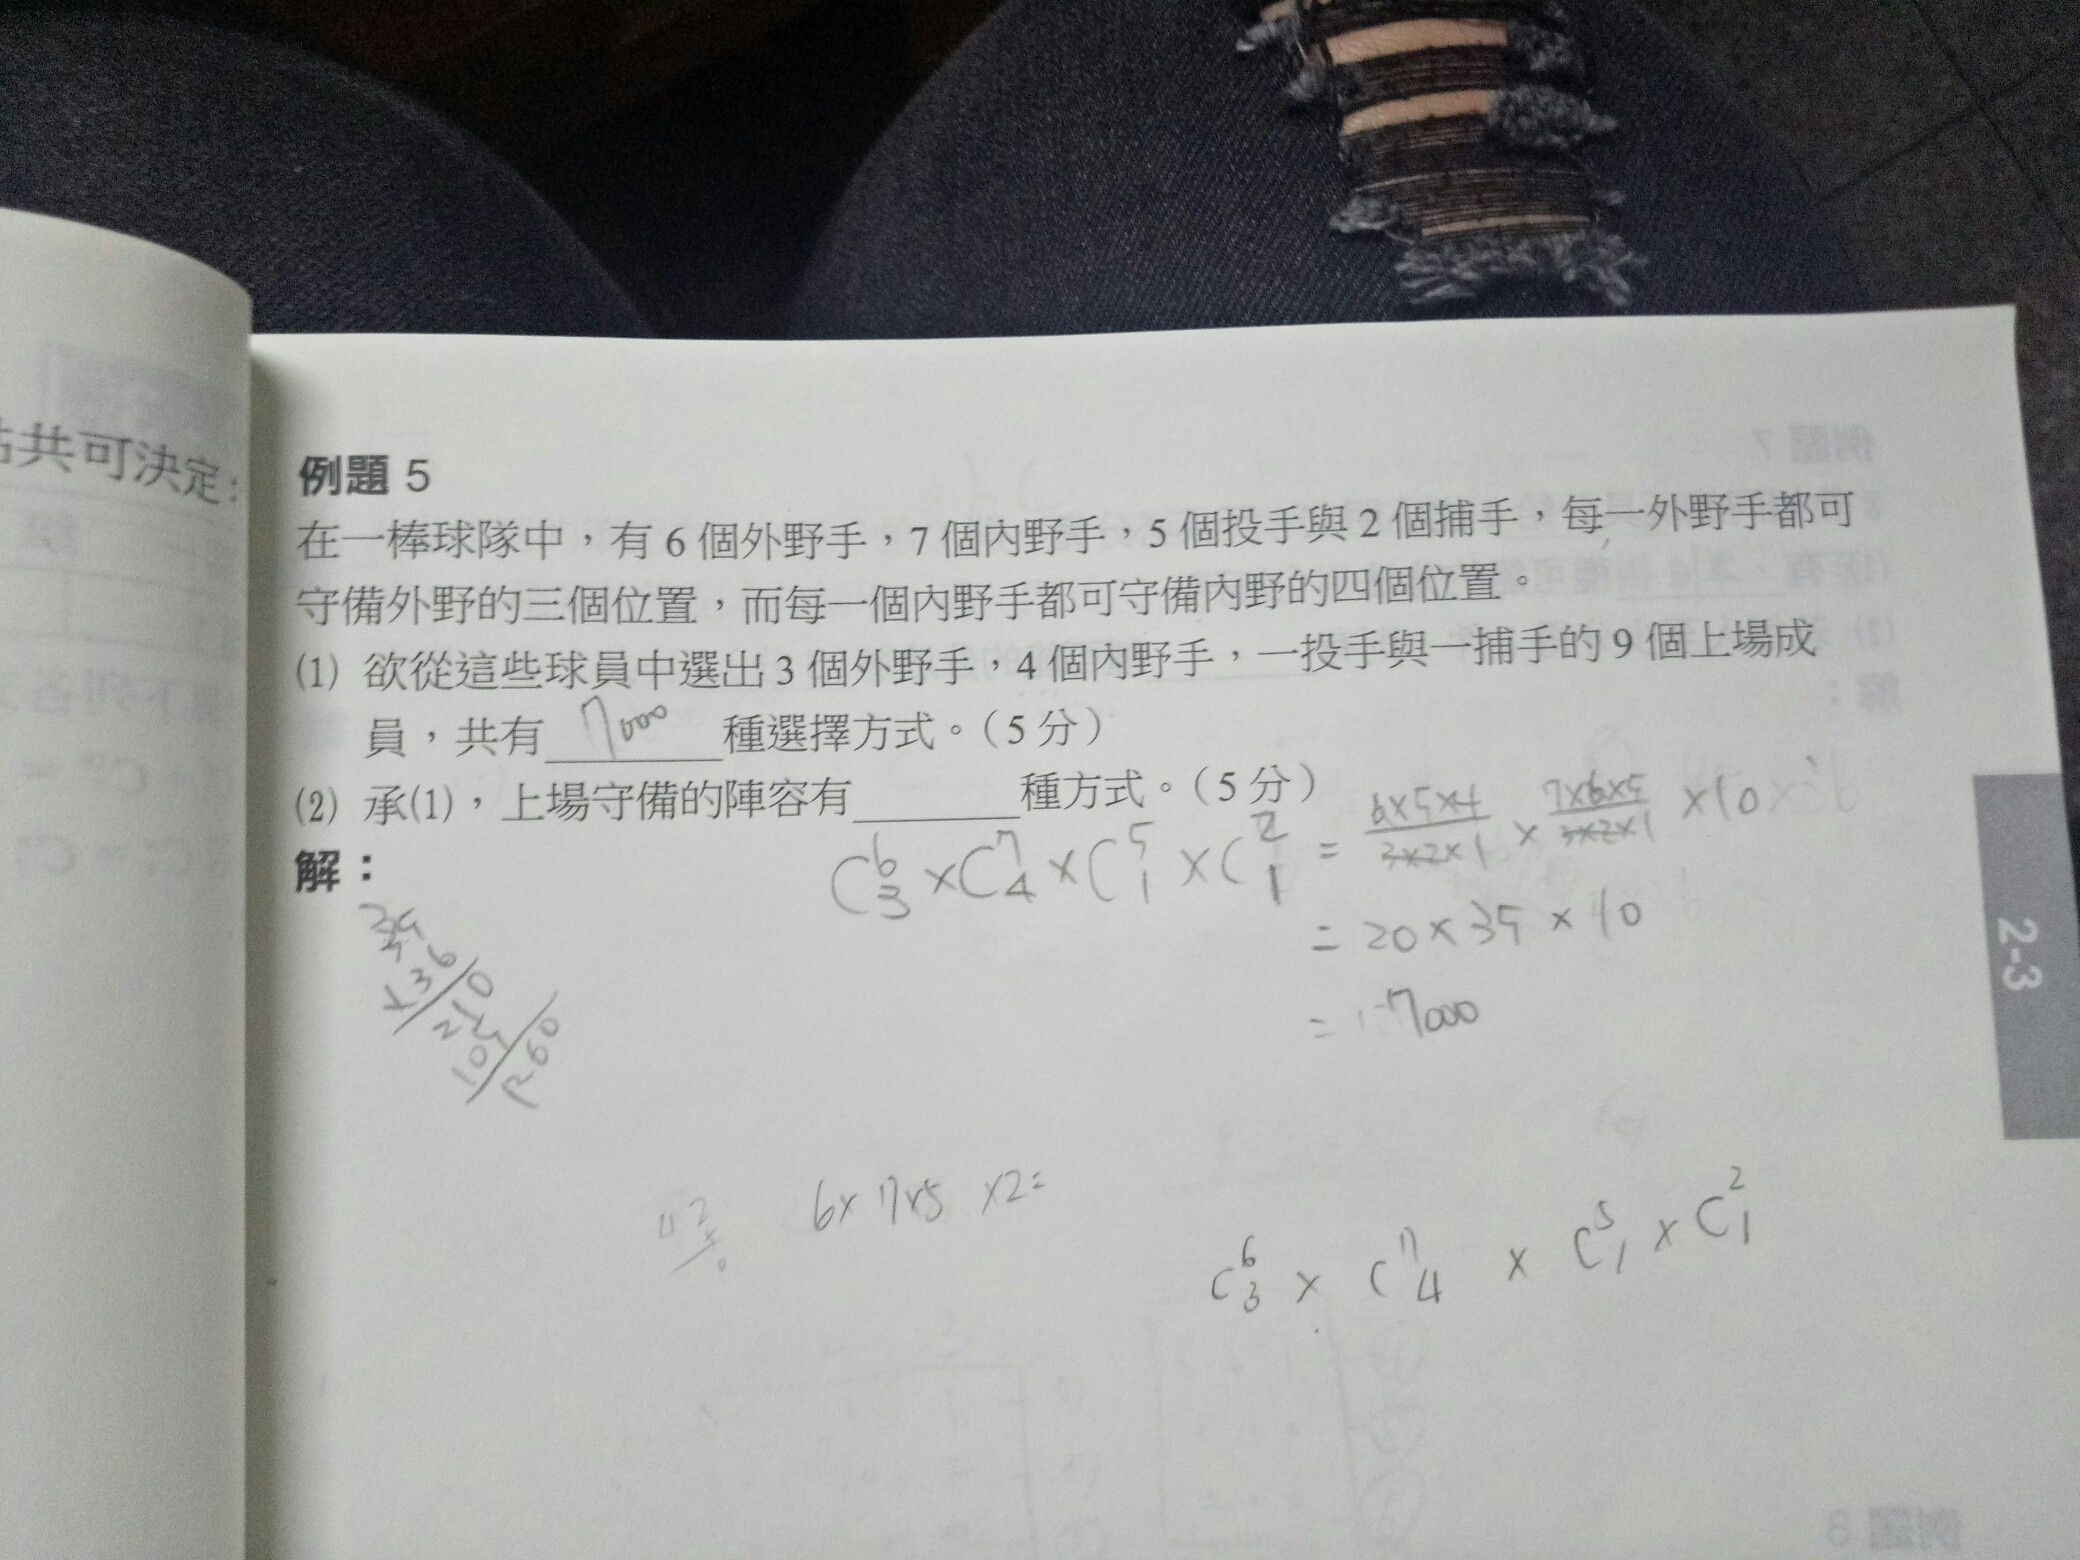 共可決定：
例題 5
在一棒球隊中，有 6 個外野手，7 個內野手，5 個投手與 2 個捕手，每一外野手都可
守備外野的三個位置，而每一個內野手都可守備內野的四個位置。
(1) 欲從這些球員中選出 3 個外野手，4 個內野手，一投手與一捕手的 9 個上場成
員，共有 7000 種選擇方式。（5 分）
(2) 承(1)，上場守備的陣容有______種方式。（5 分）
解：
C⁶₃ × C⁷₄ × C⁵₁ × C²₁ = 6×5×4/3×2×1 × 7×6×5/3×2×1 × 10
= 20 × 35 × 10
= 7000
35
×36
210
105
1260
6× 7×5 ×2=
C⁶₃ × C⁷₄ × C⁵₁ × C²₁
2-3